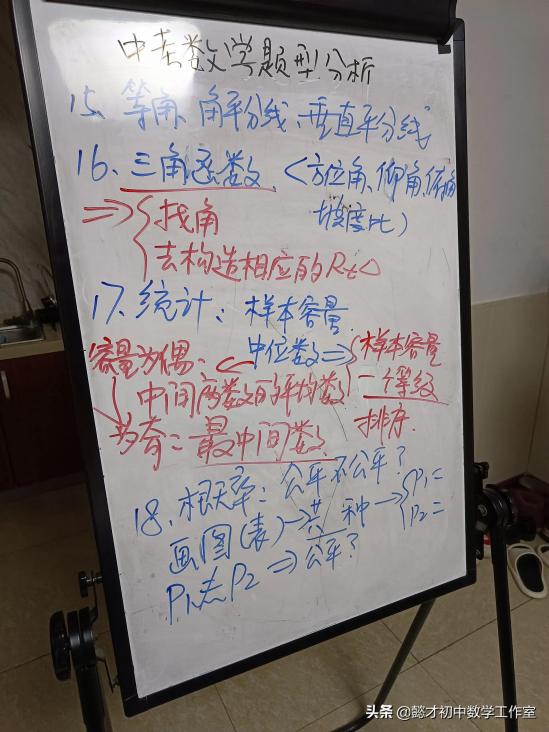 中考数学题型分析
15、等角、角平分线、垂直平分线
16、三角函数、(方位角、仰角、俯角
坡度比)
⇒{找角
去构造相应的Rt△
17、统计：样本容量
容量为偶：← 中位数⇒{样本容量
中间两数的平均数 一等级
为奇：最中间数 排序.
18、概率：公平不公平？
画图(表)→共 种→{P₁=
P₂=
P₁ P₂⇒公平？
头条 @懿才初中数学工作室